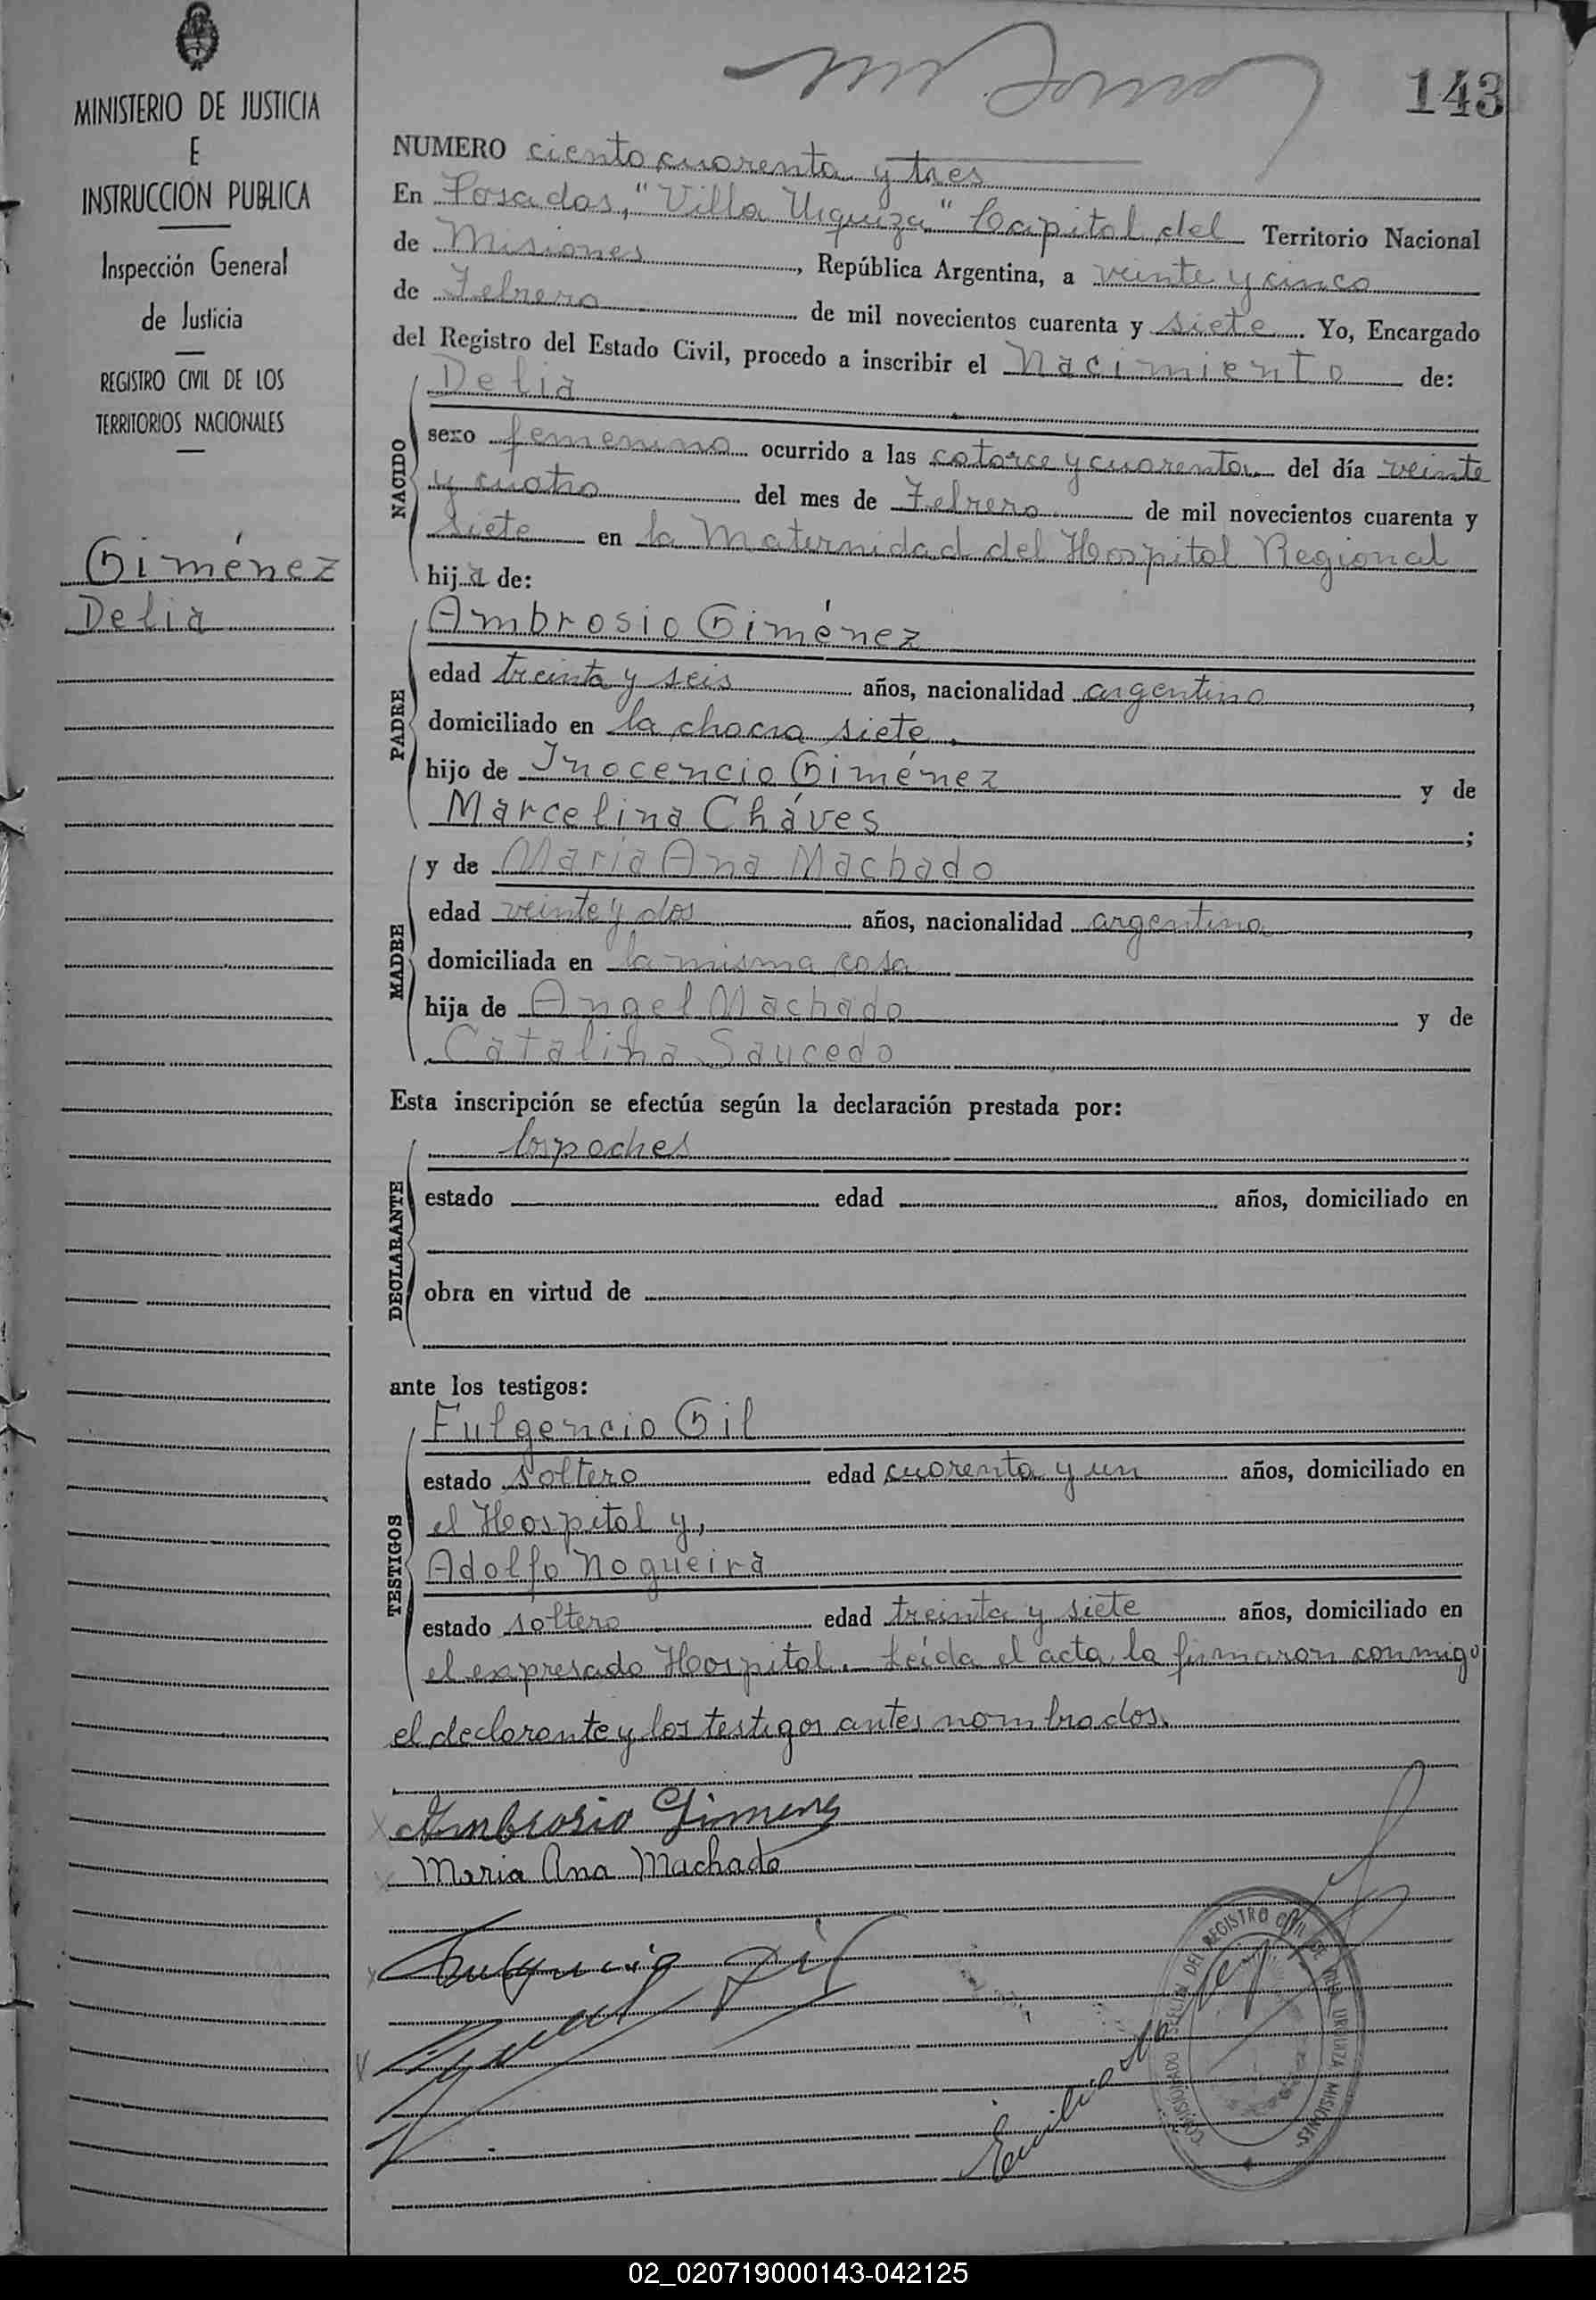 MINISTERIO DE JUSTICIA
E
INSTRUCCION PUBLICA
Inspección General
de Justicia
REGISTRO CIVIL DE LOS
TERRITORIOS NACIONALES
Giménez
Delia
143
NUMERO ciento cuarenta y tres
En Posadas, "Villa Urquiza" Capital del Territorio Nacional
de Misiones, República Argentina, a veinte y cinco
de Febrero de mil novecientos cuarenta y siete. Yo, Encargado
del Registro del Estado Civil, procedo a inscribir el Nacimiento de:
NACIDO
Delia
sexo femenino ocurrido a las catorce y cuarenta del día veinte
y cuatro del mes de Febrero de mil novecientos cuarenta y
siete en la Maternidad del Hospital Regional
hija de:
PADRE
Ambrosio Giménez
edad treinta y seis años, nacionalidad argentino,
domiciliado en la chacra siete.
hijo de Inocencio Giménez y de
Marcelina Cháves;
MADRE
y de Maria Ana Machado
edad veinte y dos años, nacionalidad argentina,
domiciliada en la misma casa
hija de Angel Machado y de
Catalina Saucedo
Esta inscripción se efectúa según la declaración prestada por:
DECLARANTE
los padres
estado edad años, domiciliado en
obra en virtud de
ante los testigos:
TESTIGOS
Fulgencio Gil
estado soltero edad cuarenta y un años, domiciliado en
el Hospital y,
Adolfo Nogueira
estado soltero edad treinta y siete años, domiciliado en
el expresado Hospital. Leída el acta la firmaron conmigo
el declarante y los testigos antes nombrados.
Ambrosio Gimenez
Maria Ana Machado
Fulgencio Gil
Emilio
DEL REGISTRO CIVIL DE VILLA URQUIZA MISIONES
02_020719000143-042125